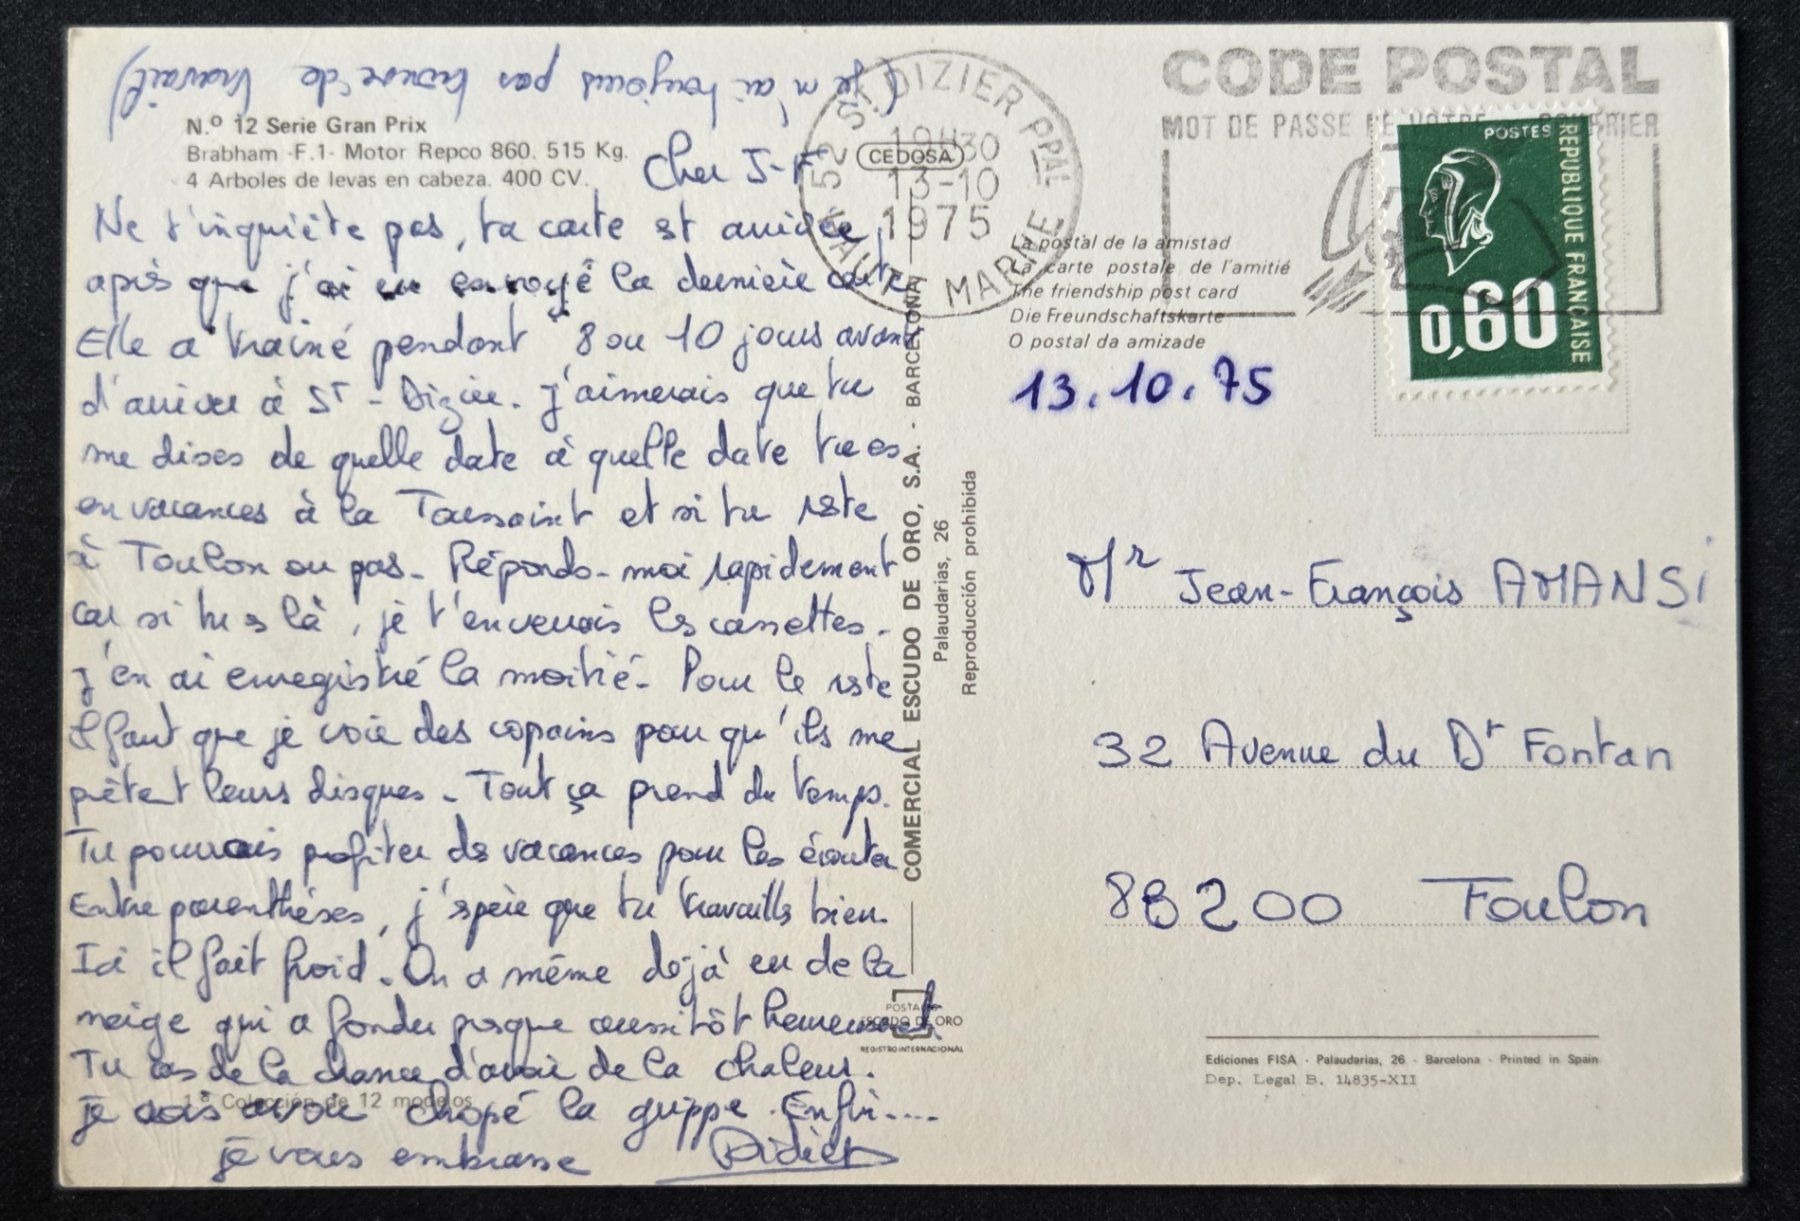 (Je n'ai toujours pas trouvé de travail)
N.º 12 Serie Gran Prix
Brabham -F.1- Motor Repco 860. 515 Kg.
4 Arboles de levas en cabeza. 400 CV.
Cher J-F
Ne t'inquiète pas, ta carte est arrivée
après que j'ai eu envoyé la dernière carte
Elle a trainé pendant 8 ou 10 jours avant
d'arriver à St-Dizier. J'aimerais que tu
me dises de quelle date à quelle date tu es
en vacances à la Toussaint et si tu reste
à Toulon ou pas. Réponds-moi rapidement
car si tu es là, je t'enverrais les cassettes.
J'en ai enregistré la moitié. Pour le reste
il faut que je voie des copains pour qu'ils me
prêtent leurs disques. Tout ça prend du temps.
Tu pourrais profiter des vacances pour les écouter
Entre parenthèses, j'espère que tu travailles bien.
Ici il fait froid. On a même dejà eu de la
neige qui a fondu presque aussitôt heureusement.
Tu as de la chance d'avoir de la chaleur.
je dois avoir chopé la grippe. Enfin....
je vous embrasse Didier
1.ª Colección de 12 modelos
CEDOSA
COMERCIAL ESCUDO DE ORO, S.A. - BARCELONA
Palaudarias, 26
Reproducción prohibida
POSTALES
ESCUDO DE ORO
REGISTRO INTERNACIONAL
52 ST DIZIER PPAL
19H30
13-10
1975
HAUTE MARNE
CODE POSTAL
MOT DE PASSE DE VOTRE COURRIER
POSTES
REPUBLIQUE FRANÇAISE
0,60
La postal de la amistad
La carte postale de l'amitié
The friendship post card
Die Freundschaftskarte
O postal da amizade
13.10.75
Mr Jean-François AMANSI
32 Avenue du Dr Fontan
83200 Toulon
Ediciones FISA - Palaudarias, 26 - Barcelona - Printed in Spain
Dep. Legal B. 14835-XII